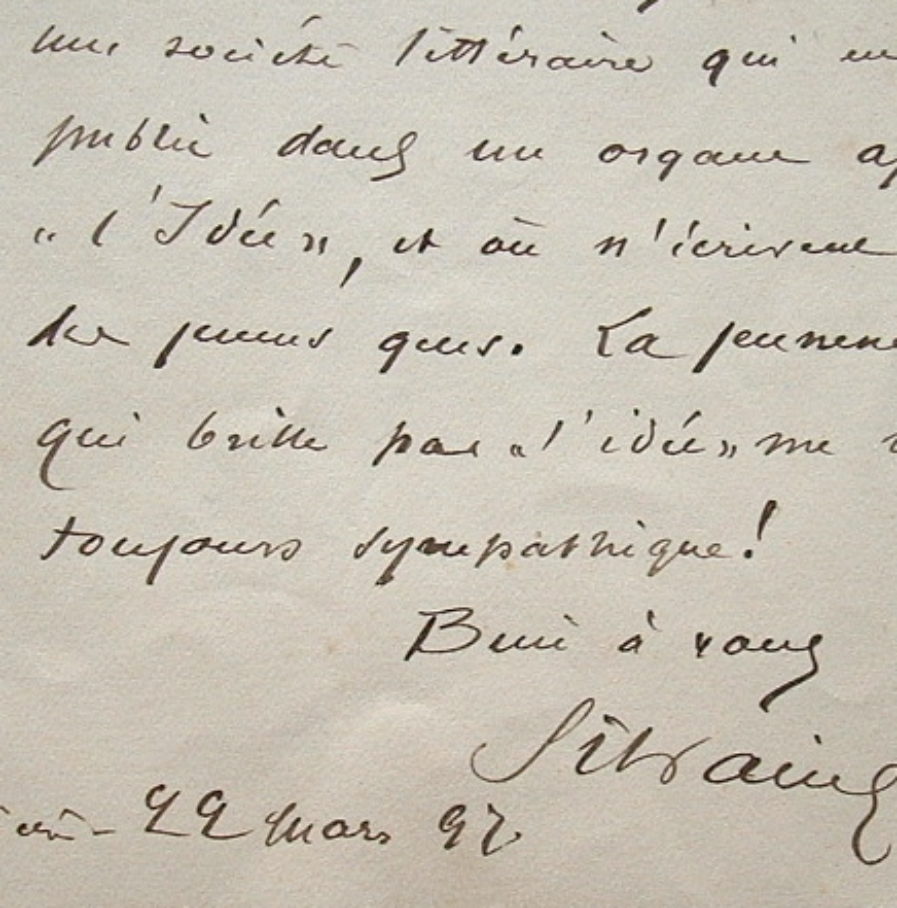 une société littéraire qui en
publie dans un organe
« l'Idée », et où n'écrivent
des jeunes gens. La jeunesse
qui brille par « l'idée » me
toujours sympathique!
Bien à vous
Silvain
22 Mars 97